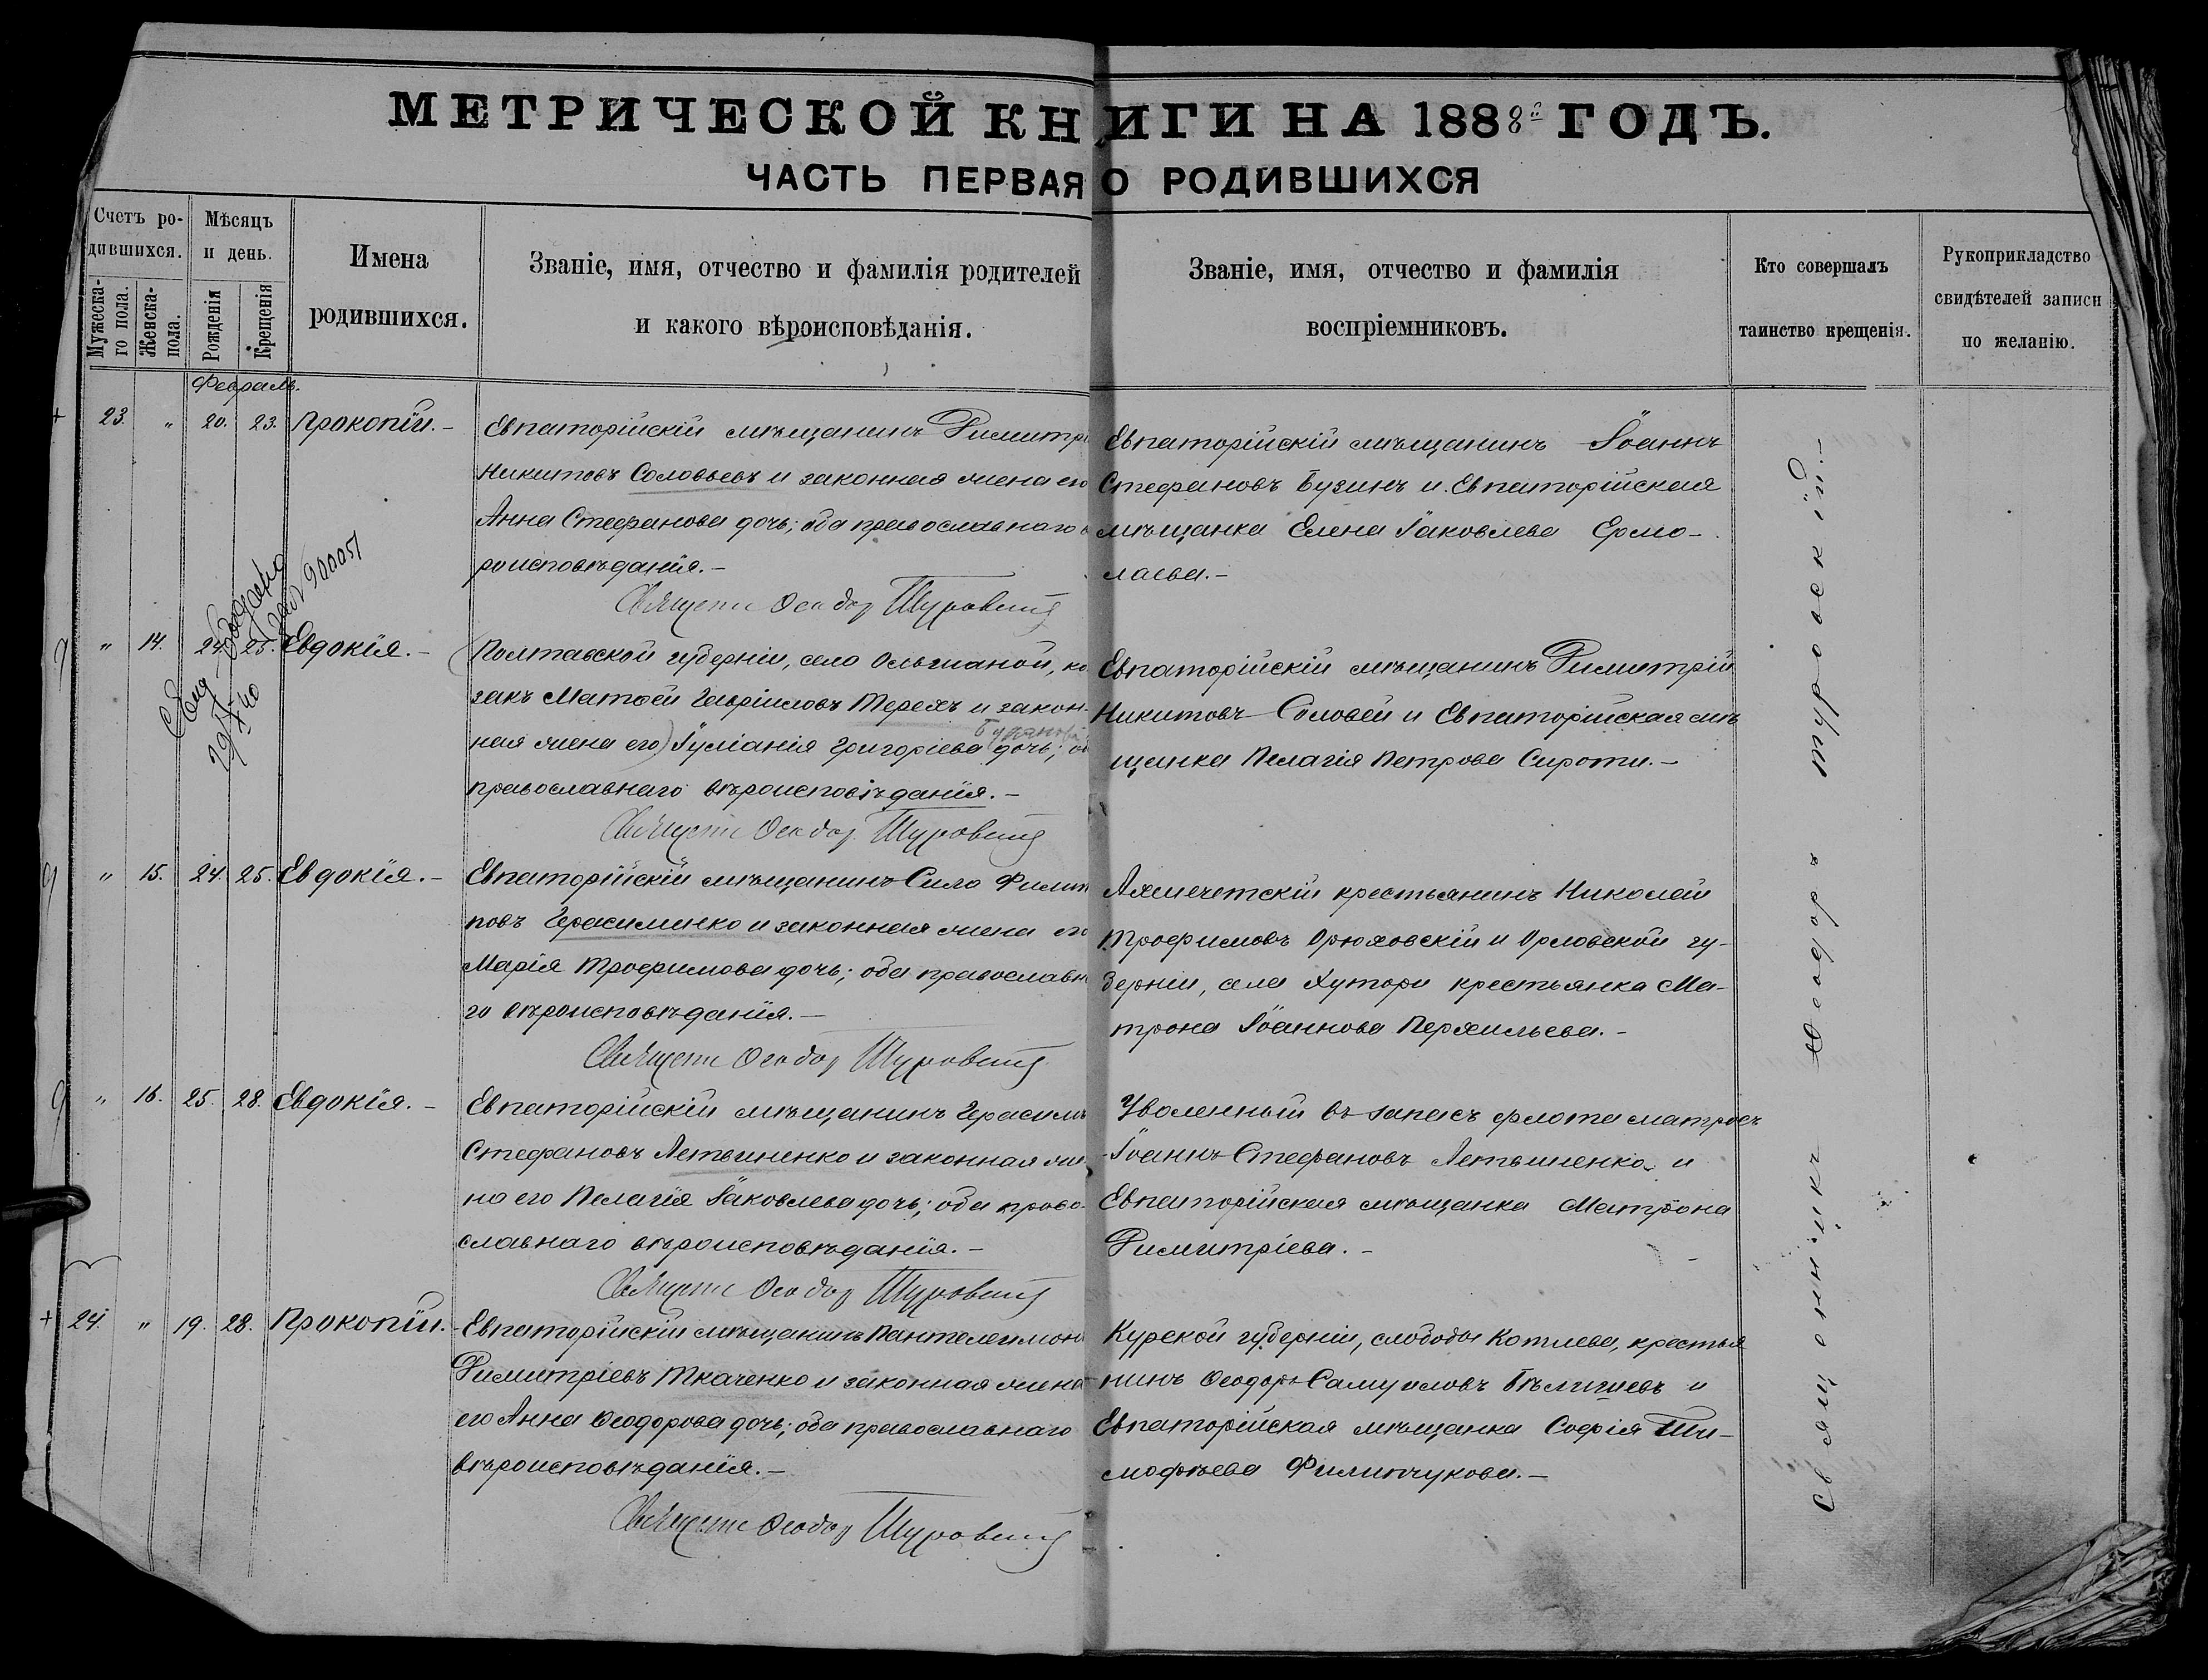 МЕТРИЧЕСКОЙ КНИГИ НА 1888й ГОДЪ.
ЧАСТЬ ПЕРВАЯ О РОДИВШИХСЯ
Счетъ ро-
дившихся.
Мужеска-
го пола.
Женска-
пола.
Мѣсяцъ
и день.
Рожденія
Крещенія
Имена
родившихся.
Званіе, имя, отчество и фамилія родителей
и какого вѣроисповѣданія.
Званіе, имя, отчество и фамилія
воспріемниковъ.
Кто совершалъ
таинство крещенія.
Рукоприкладство
свидѣтелей записи
по желанію.
Февраль.
23. " 20. 23. Прокопій.-
Евпаторійскій мѣщанинъ Димитрі
Никитовъ Соловьевъ и законная жена его
Анна Стефанова дочь; оба православнаго в
роисповѣданія.-
Священ Ѳеодор Туровскій
Евпаторійскій мѣщанинъ Іоаннъ
Стефановъ Бузинъ и Евпаторійская
мѣщанка Елена Іаковлева Ермо-
лаева.-
" 14. 24. 25. Евдокія.-
29 X 40
Полтавской губерніи, села Ольшаной, ко
закъ Матѳей Гавріиловъ Терехъ и закон-
ная жена его) Іуліанія Григоріева дочь; об
православнаго вѣроисповѣданія.-
Священ Ѳеодор Туровскій
Евпаторійскій мѣщанинъ Димитрій
Никитовъ Соловей и Евпаторійская мѣ
щанка Пелагія Петрова Сирота.-
" 15. 24. 25. Евдокія.-
Евпаторійскій мѣщанинъ Сила Филип
повъ Герасименко и законная жена его
Марія Трофимова дочь; оба православна
го вѣроисповѣданія.-
Священ Ѳеодор Туровскій
Ахмечетскій крестьянинъ Николай
Трофимовъ Орюховскій и Орловской гу-
берніи, села Хутора крестьянка Ма-
трона Іоаннова
" 16. 25. 28. Евдокія.-
Евпаторійскій мѣщанинъ Герасимъ
Стефановъ Летвиненко и законная же
на его Пелагія Іаковлева дочь; оба право-
славнаго вѣроисповѣданія.-
Священ Ѳеодор Туровскій
Уволенный въ запасъ флота матросъ
Іоаннъ Стефановъ и
Евпаторійская мѣщанка Матрона
Димитріева.-
24. " 19. 28. Прокопій.
Евпаторійскій мѣщанинъ Пантелеимонъ
Димитріевъ Ткаченко и законная жена
его Анна Ѳеодорова дочь; оба православнаго
вѣроисповѣданія.-
Священ Ѳеодор Туровскій
Курской губерніи, слободы Котлева, крестья
нинъ Ѳеодоръ Самуиловъ и
Евпаторійская мѣщанка Софія Ти-
мофѣева Филипчукова.-
Священникъ Ѳеодоръ Туровскій.-